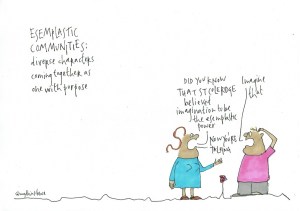 ESEMPLASTIC
COMMUNITIES:
diverse characters
coming together as
one with purpose
DID YOU KNOW
THAT ST COLERIDGE
believed
imagination to be
the esemplastic
power
NOW YOU'RE
TALKING
Imagine
that